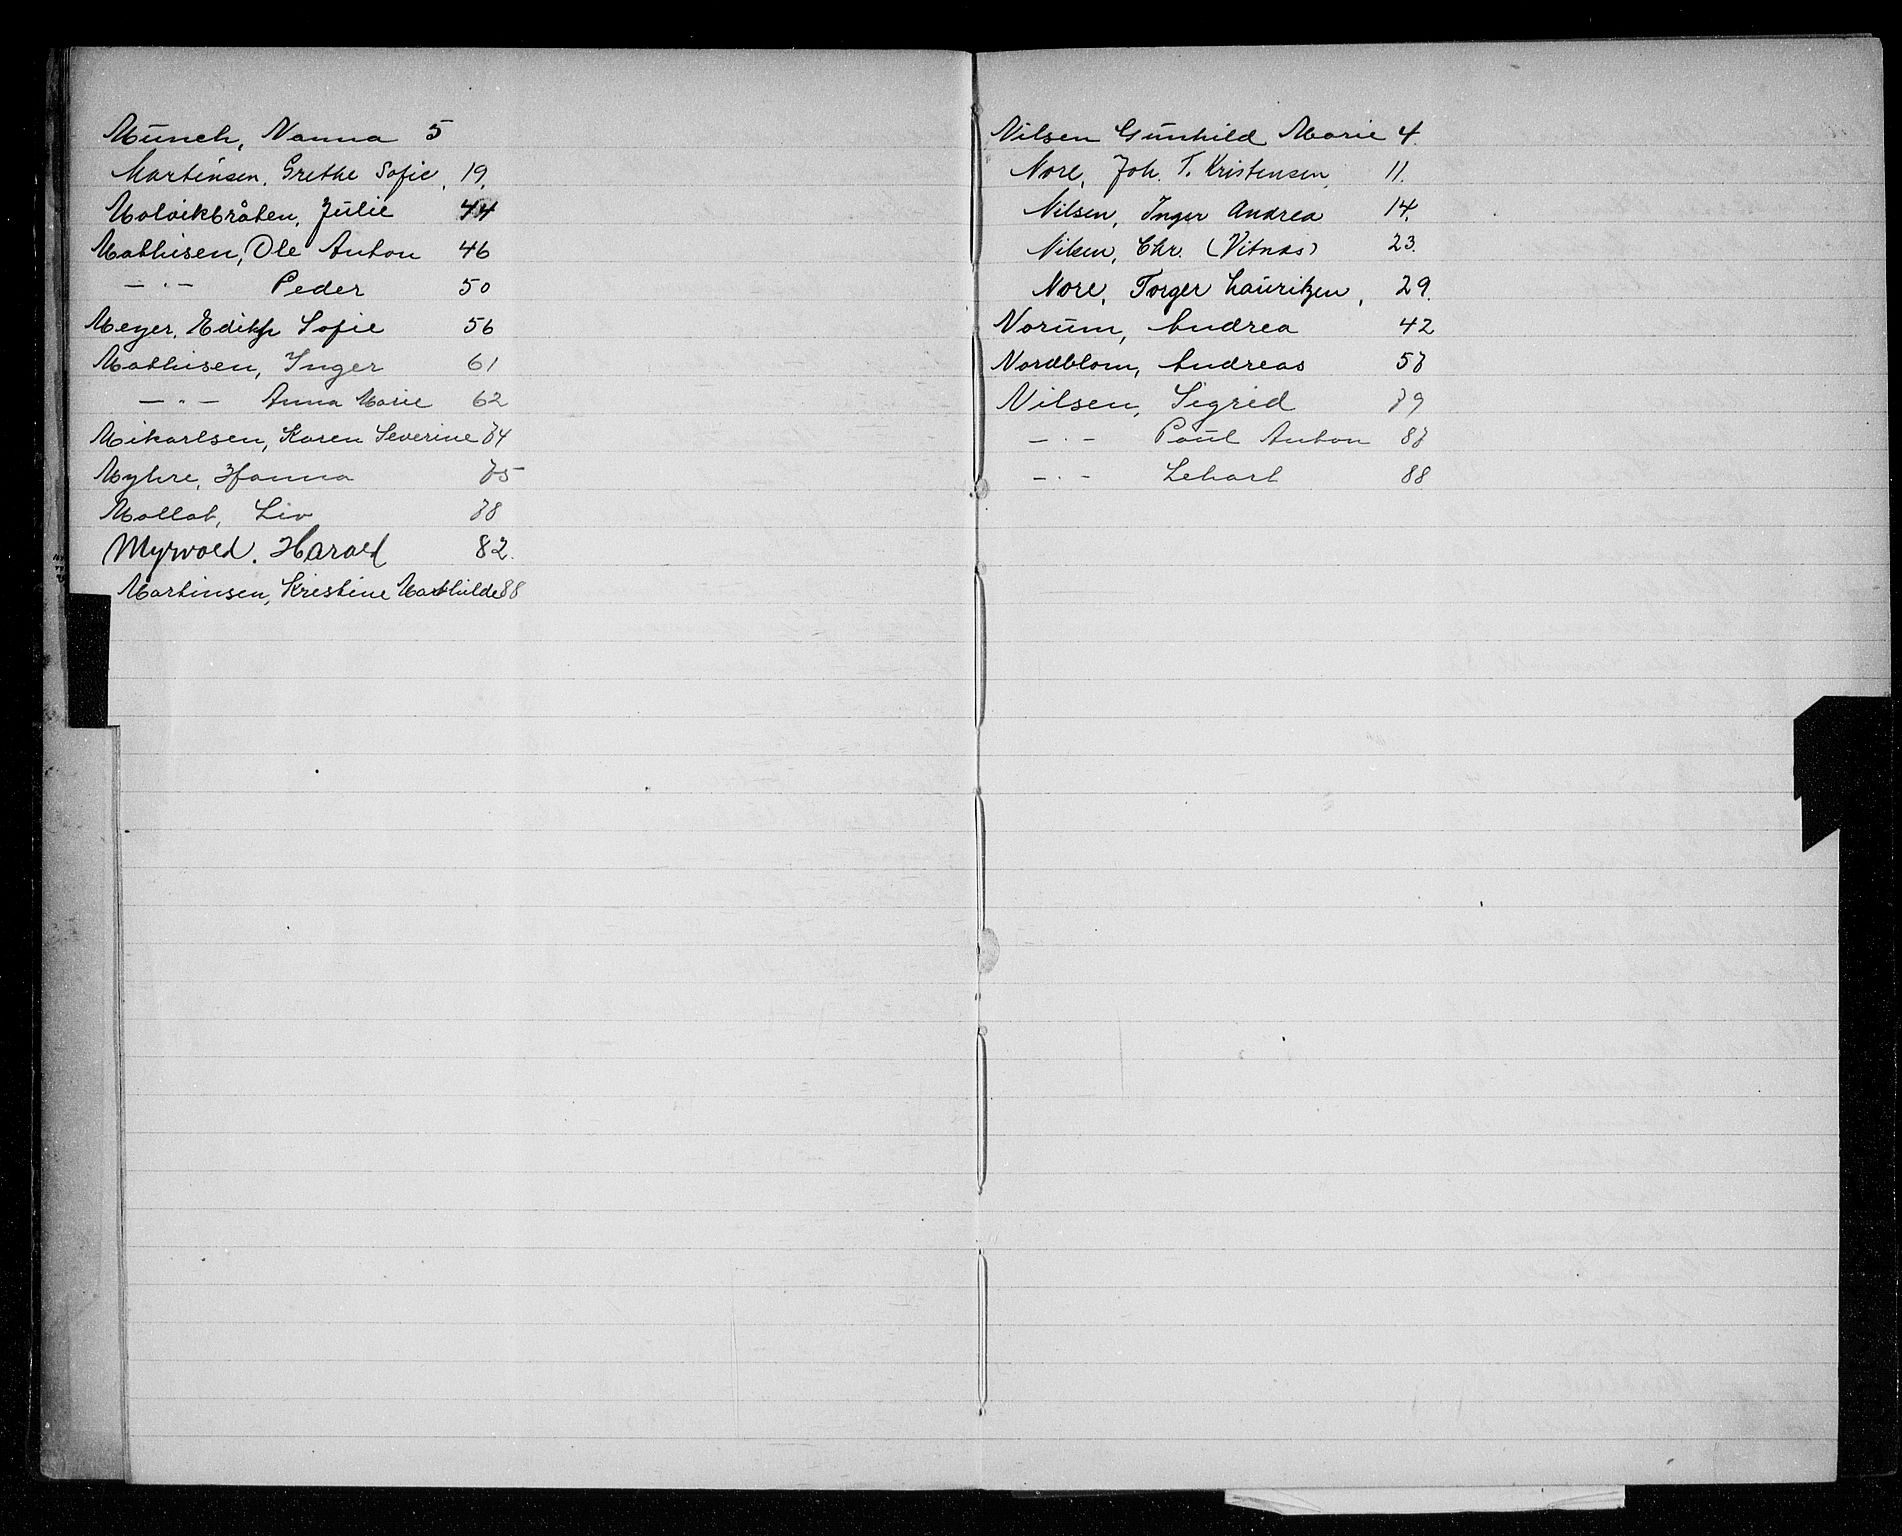 Munch, Nanna 5
Martinsen, Grethe Sofie, 19.
Molvikbråten, Julie 44
Mathisen, Ole Anton 46
— " — Peder 50
Meyer, Edith Sofie 56
Mathisen, Inger 61
— " — Anna Marie 62
Mikarlsen, Karen Severine 74
Myhre, Hanna 75
Mollat, Liv 78
Myrvold. Harald 82.
Martinsen, Kristine Mathilde 88
Nilsen Gunhild Marie 4.
Nore, Joh. T. Kristensen, 11.
Nilsen, Inger Andrea 14.
Nilsen, Chr. (Vitnæs) 23.
Nore, Torger Lauritzen, 29.
Norum, Andrea 42
Nordblom, Andreas 57
Nilsen, Sigrid 79
— " — Paul Anton 87
— " — Lehart 88